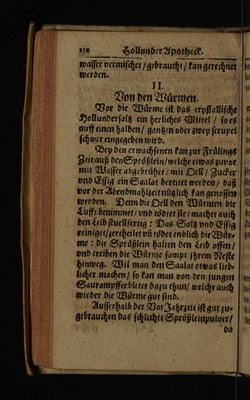 150 Hollunder Apotheck.
wasser vermischet / gebraucht / kan gerechnet
werden.
II.
Von den Würmen.
Vor die Würme ist das crystallische
Hollundersaltz ein herliches Mittel / so es
auff einen halben / gantzen oder zwey scrupel
schwer eingegeben wird.
Bey den erwachsenen kan zur Frülings
Zeit auß den Sprößlein / welche etwas zuvor
mit Wasser abgebrühet / mit Oell / Zucker
und Essig ein Saalat bereitet werden / daß
vor der Abendmahlzeit nützlich kan genossen
werden. Denn die Oell den Würmen die
Lufft benimmet / und tödtet sie / machet auch
den Leib stuelfertig: Das Saltz und Essig
reiniget / zertheilet uñ tödet endlich die Wür-
me: die Sprößlein halten den Leib offen /
und treiben die Würme sampt jhrem Neste
hinweg. Wil man den Saalat etwas lieb-
licher machen / so kan man von den jungen
Saurampfferbletter dazu thun / welche auch
wieder die Würme gut sind.
Ausserhalb der Vor Jahrzeit ist gut zu-
gebrauchen das schlechte Sprößleinpulver /
da